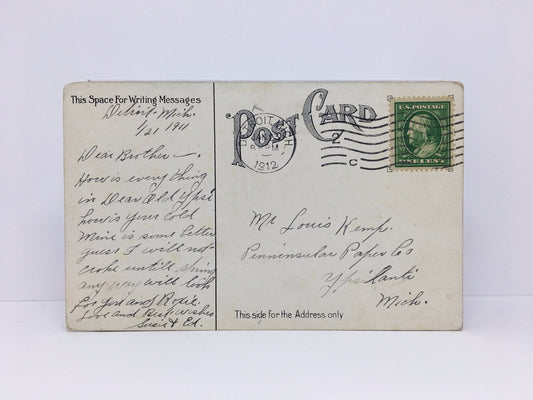 This Space For Writing Messages
Detroit - Mich.
1/21 1911
Dear Brother -
How is everything
in Dear Old Ypsi
how is your cold
Mine is some better
guess I will not
croke untill spring
any way will look
for you and Rosie.
Love and Best wishes
Susie & Ed.
POST CARD
DETROIT, MICH
8 PM
1912
2
C
U.S. POSTAGE
ONE CENT
Mr Louis Kemp.
Penninsular Paper Co
Ypsilanti
Mich.
This side for the Address only